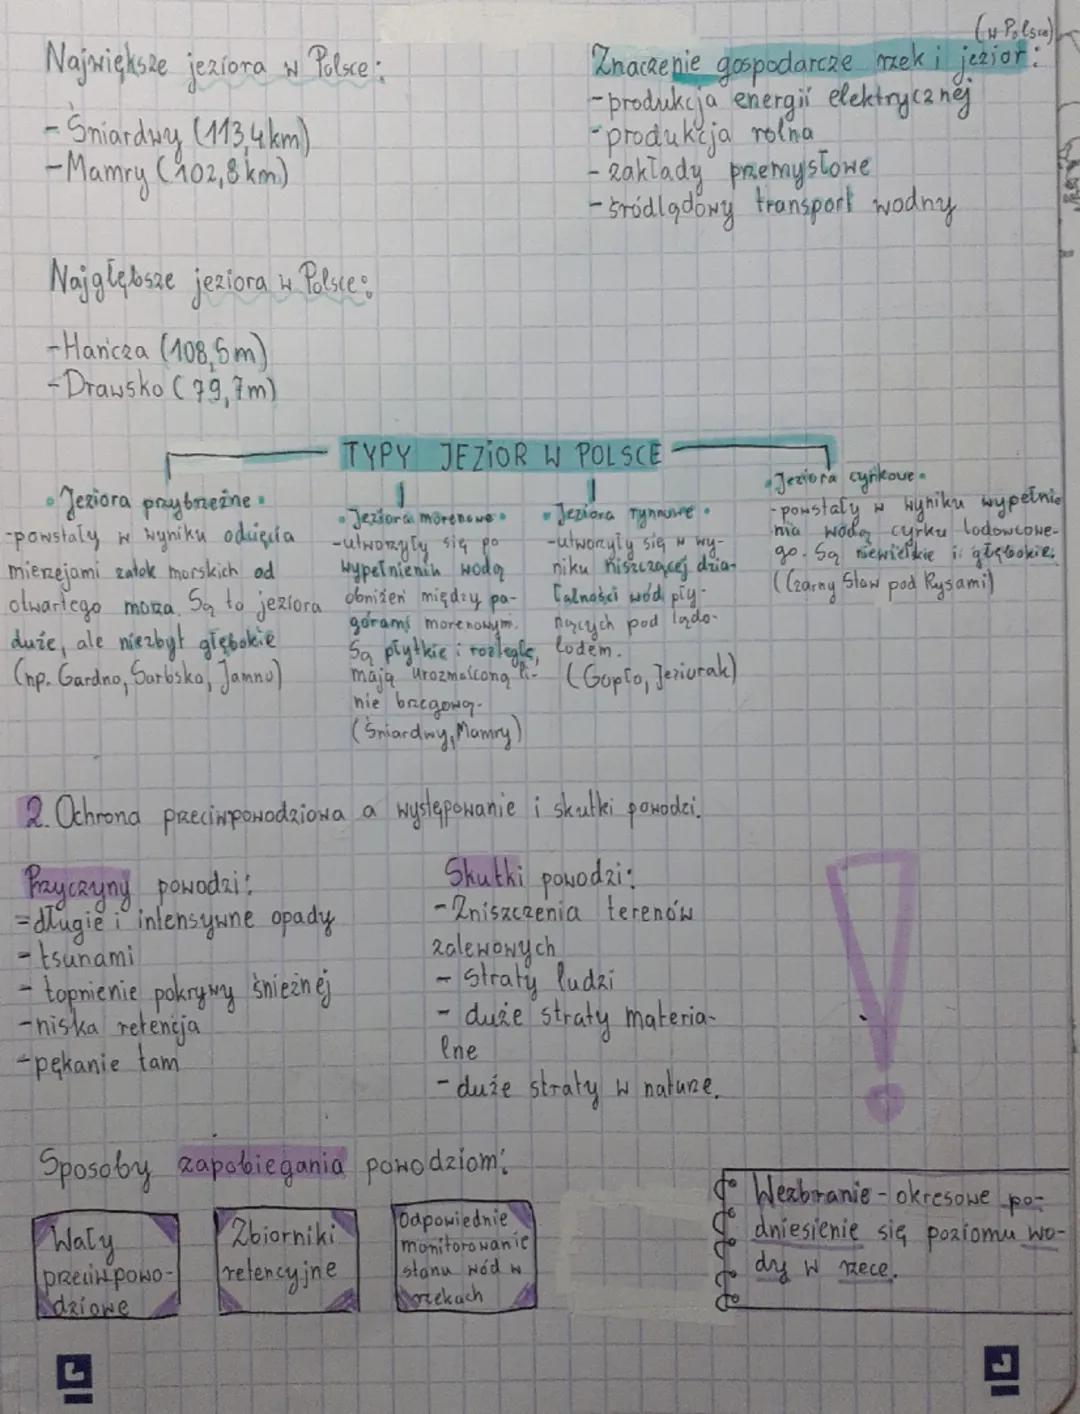 Największe jeziora w Polsce:
- Śniardwy (113,4km)
- Mamry (102,8km)
(w Polsce)
Znaczenie gospodarcze rzek i jezior:
- produkcja energii elektrycznej
- produkcja rolna
- zakłady przemysłowe
- śródlądowy transport wodny
Najgłębsze jeziora w Polsce:
- Hańcza (108,5m)
- Drawsko (79,7m)
TYPY JEZIOR W POLSCE
• Jeziora przybrzeżne •
- powstały w wyniku odcięcia
mierzejami zatok morskich od
otwartego morza. Są to jeziora
duże, ale niezbyt głębokie
(np. Gardno, Sarbsko, Jamno)
• Jeziora morenowe •
- utworzyły się po
wypełnieniu wodą
obniżeń między pa-
górami morenowym.
Są płytkie i rozległe,
mają urozmaiconą li-
nie brzegową.
(Śniardwy, Mamry)
• Jeziora rynnowe •
- utworzyły się w wy-
niku niszczącej dzia-
łalności wód pły-
nących pod lądo-
lodem.
(Gopło, Jeziorak)
• Jeziora cyrkowe •
- powstały w wyniku wypełnie
nia wodą cyrku lodowcowe-
go. Są niewielkie i głębokie.
(Czarny Staw pod Rysami)
2. Ochrona przeciwpowodziowa a występowanie i skutki powodzi.
Przyczyny powodzi:
- długie i intensywne opady
- tsunami
- topnienie pokrywy śnieżnej
- niska retencja
- pękanie tam
Skutki powodzi:
- Zniszczenia terenów
zalewowych
- straty ludzi
- duże straty materia-
lne
- duże straty w naturze.
!
Sposoby zapobiegania powodziom:
Wały
przeciwpowo-
dziowe
Zbiorniki
retencyjne
Odpowiednie
monitorowanie
stanu wód w
rzekach
Wezbranie - okresowe po-
dniesienie się poziomu wo-
dy w rzece.